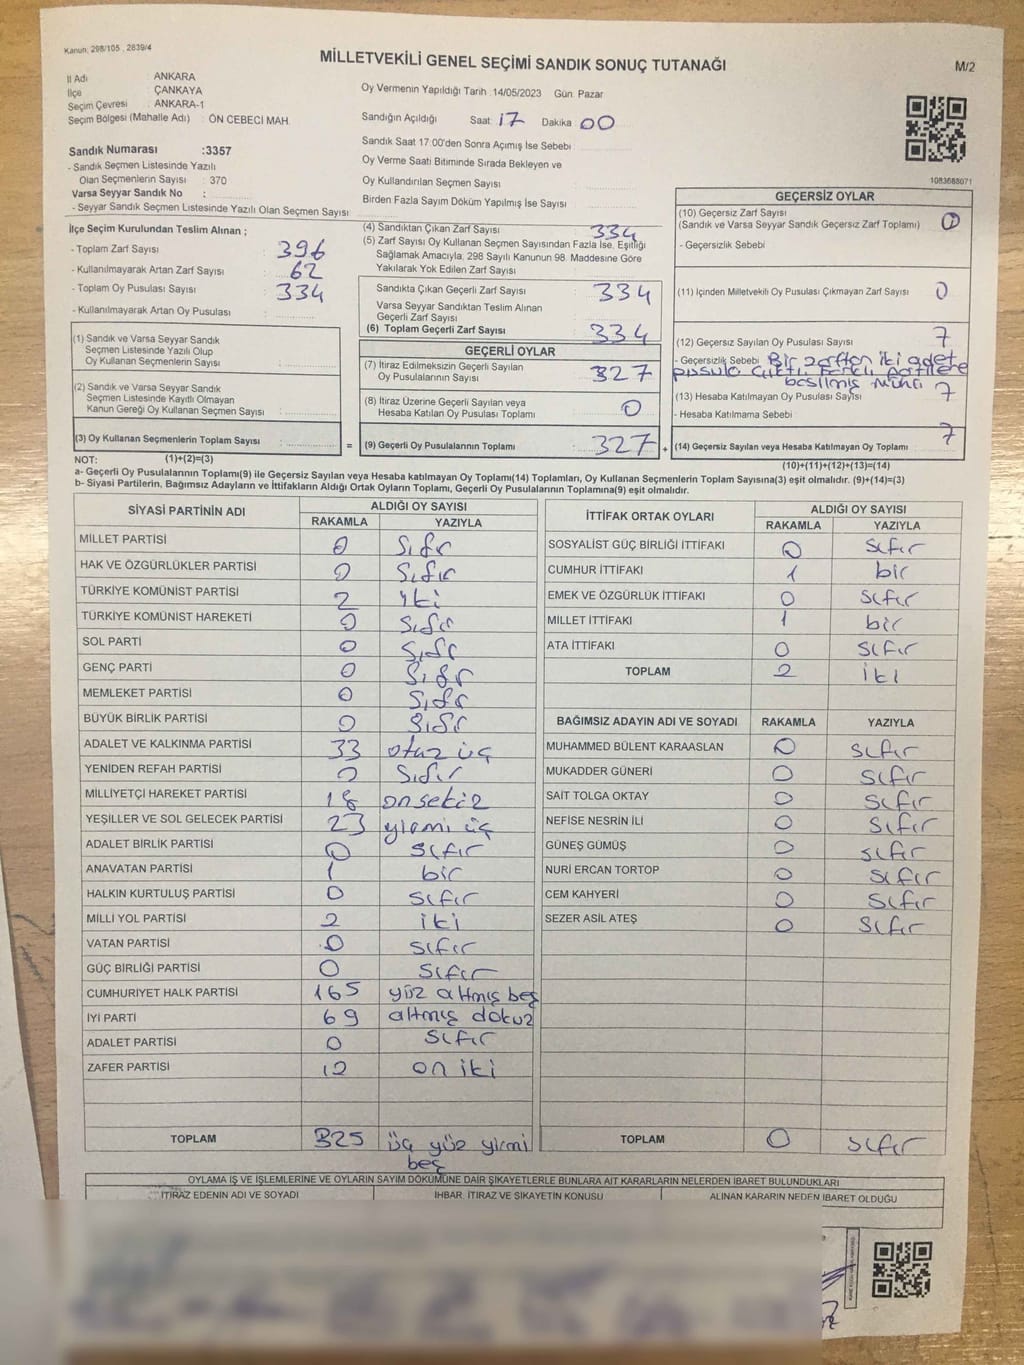 Kanun, 298/105 , 2839/4
MİLLETVEKİLİ GENEL SEÇİMİ SANDIK SONUÇ TUTANAĞI
M/2
İl Adı : ANKARA
İlçe : ÇANKAYA
Seçim Çevresi : ANKARA-1
Seçim Bölgesi (Mahalle Adı) : ÖN CEBECİ MAH.
Sandık Numarası :3357
- Sandık Seçmen Listesinde Yazılı
Olan Seçmenlerin Sayısı : 370
Varsa Seyyar Sandık No :
- Seyyar Sandık Seçmen Listesinde Yazılı Olan Seçmen Sayısı
Oy Vermenin Yapıldığı Tarih :14/05/2023 Gün: Pazar
Sandığın Açıldığı Saat 17 Dakika 00
Sandık Saat 17:00'den Sonra Açımış İse Sebebi
Oy Verme Saati Bitiminde Sırada Bekleyen ve
Oy Kullandırılan Seçmen Sayısı
Birden Fazla Sayım Döküm Yapılmış İse Sayısı
1083688071
İlçe Seçim Kurulundan Teslim Alınan ;
- Toplam Zarf Sayısı : 396
- Kullanılmayarak Artan Zarf Sayısı : 62
- Toplam Oy Pusulası Sayısı : 334
- Kullanılmayarak Artan Oy Pusulası :
(1) Sandık ve Varsa Seyyar Sandık
Seçmen Listesinde Yazılı Olup
Oy Kullanan Seçmenlerin Sayısı :
(2) Sandık ve Varsa Seyyar Sandık
Seçmen Listesinde Kayıtlı Olmayan
Kanun Gereği Oy Kullanan Seçmen Sayısı :
(3) Oy Kullanan Seçmenlerin Toplam Sayısı :
(4) Sandıktan Çıkan Zarf Sayısı : 334
(5) Zarf Sayısı Oy Kullanan Seçmen Sayısından Fazla İse, Eşitliği
Sağlamak Amacıyla, 298 Sayılı Kanunun 98. Maddesine Göre
Yakılarak Yok Edilen Zarf Sayısı :
Sandıkta Çıkan Geçerli Zarf Sayısı : 334
Varsa Seyyar Sandıktan Teslim Alınan
Geçerli Zarf Sayısı :
(6) Toplam Geçerli Zarf Sayısı : 334
GEÇERLİ OYLAR
(7) İtiraz Edilmeksizin Geçerli Sayılan
Oy Pusulalarının Sayısı : 327
(8) İtiraz Üzerine Geçerli Sayılan veya
Hesaba Katılan Oy Pusulası Toplamı : 0
= (9) Geçerli Oy Pusulalarının Toplamı : 327 +
GEÇERSİZ OYLAR
(10) Geçersiz Zarf Sayısı
(Sandık ve Varsa Seyyar Sandık Geçersiz Zarf Toplamı) 0
- Geçersizlik Sebebi
(11) İçinden Milletvekili Oy Pusulası Çıkmayan Zarf Sayısı 0
(12) Geçersiz Sayılan Oy Pusulası Sayısı 7
- Geçersizlik Sebebi Bir zarftan iki adet
pusula çıktı, farklı partilere
basılmış mühür
(13) Hesaba Katılmayan Oy Pusulası Sayısı 7
- Hesaba Katılmama Sebebi
(14) Geçersiz Sayılan veya Hesaba Katılmayan Oy Toplamı 7
NOT: (1)+(2)=(3)
(10)+(11)+(12)+(13)=(14)
a- Geçerli Oy Pusulalarının Toplamı(9) ile Geçersiz Sayılan veya Hesaba katılmayan Oy Toplamı(14) Toplamları, Oy Kullanan Seçmenlerin Toplam Sayısına(3) eşit olmalıdır. (9)+(14)=(3)
b- Siyasi Partilerin, Bağımsız Adayların ve İttifakların Aldığı Ortak Oyların Toplamı, Geçerli Oy Pusulalarının Toplamına(9) eşit olmalıdır.
SİYASİ PARTİNİN ADI ALDIĞI OY SAYISI
RAKAMLA YAZIYLA
MİLLET PARTİSİ 0 Sıfır
HAK VE ÖZGÜRLÜKLER PARTİSİ 0 Sıfır
TÜRKİYE KOMÜNİST PARTİSİ 2 iki
TÜRKİYE KOMÜNİST HAREKETİ 0 Sıfır
SOL PARTİ 0 Sıfır
GENÇ PARTİ 0 Sıfır
MEMLEKET PARTİSİ 0 Sıfır
BÜYÜK BİRLİK PARTİSİ 0 Sıfır
ADALET VE KALKINMA PARTİSİ 33 otuz üç
YENİDEN REFAH PARTİSİ 0 Sıfır
MİLLİYETÇİ HAREKET PARTİSİ 18 onsekiz
YEŞİLLER VE SOL GELECEK PARTİSİ 23 yirmi üç
ADALET BİRLİK PARTİSİ 0 sıfır
ANAVATAN PARTİSİ 1 bir
HALKIN KURTULUŞ PARTİSİ 0 sıfır
MİLLİ YOL PARTİSİ 2 iki
VATAN PARTİSİ 0 sıfır
GÜÇ BİRLİĞİ PARTİSİ 0 sıfır
CUMHURİYET HALK PARTİSİ 165 yüz altmış beş
İYİ PARTİ 69 altmış dokuz
ADALET PARTİSİ 0 sıfır
ZAFER PARTİSİ 12 on iki
TOPLAM 325 üç yüz yirmi
beş
İTTİFAK ORTAK OYLARI ALDIĞI OY SAYISI
RAKAMLA YAZIYLA
SOSYALİST GÜÇ BİRLİĞİ İTTİFAKI 0 sıfır
CUMHUR İTTİFAKI 1 bir
EMEK VE ÖZGÜRLÜK İTTİFAKI 0 sıfır
MİLLET İTTİFAKI 1 bir
ATA İTTİFAKI 0 sıfır
TOPLAM 2 iki
BAĞIMSIZ ADAYIN ADI VE SOYADI RAKAMLA YAZIYLA
MUHAMMED BÜLENT KARAASLAN 0 sıfır
MUKADDER GÜNERİ 0 sıfır
SAİT TOLGA OKTAY 0 sıfır
NEFİSE NESRİN İLİ 0 sıfır
GÜNEŞ GÜMÜŞ 0 sıfır
NURİ ERCAN TORTOP 0 sıfır
CEM KAHYERİ 0 sıfır
SEZER ASİL ATEŞ 0 sıfır
TOPLAM 0 sıfır
OYLAMA İŞ VE İŞLEMLERİNE VE OYLARIN SAYIM DÖKÜMÜNE DAİR ŞİKAYETLERLE BUNLARA AİT KARARLARIN NELERDEN İBARET BULUNDUKLARI
İTİRAZ EDENİN ADI VE SOYADI İHBAR, İTİRAZ VE ŞİKAYETİN KONUSU ALINAN KARARIN NEDEN İBARET OLDUĞU